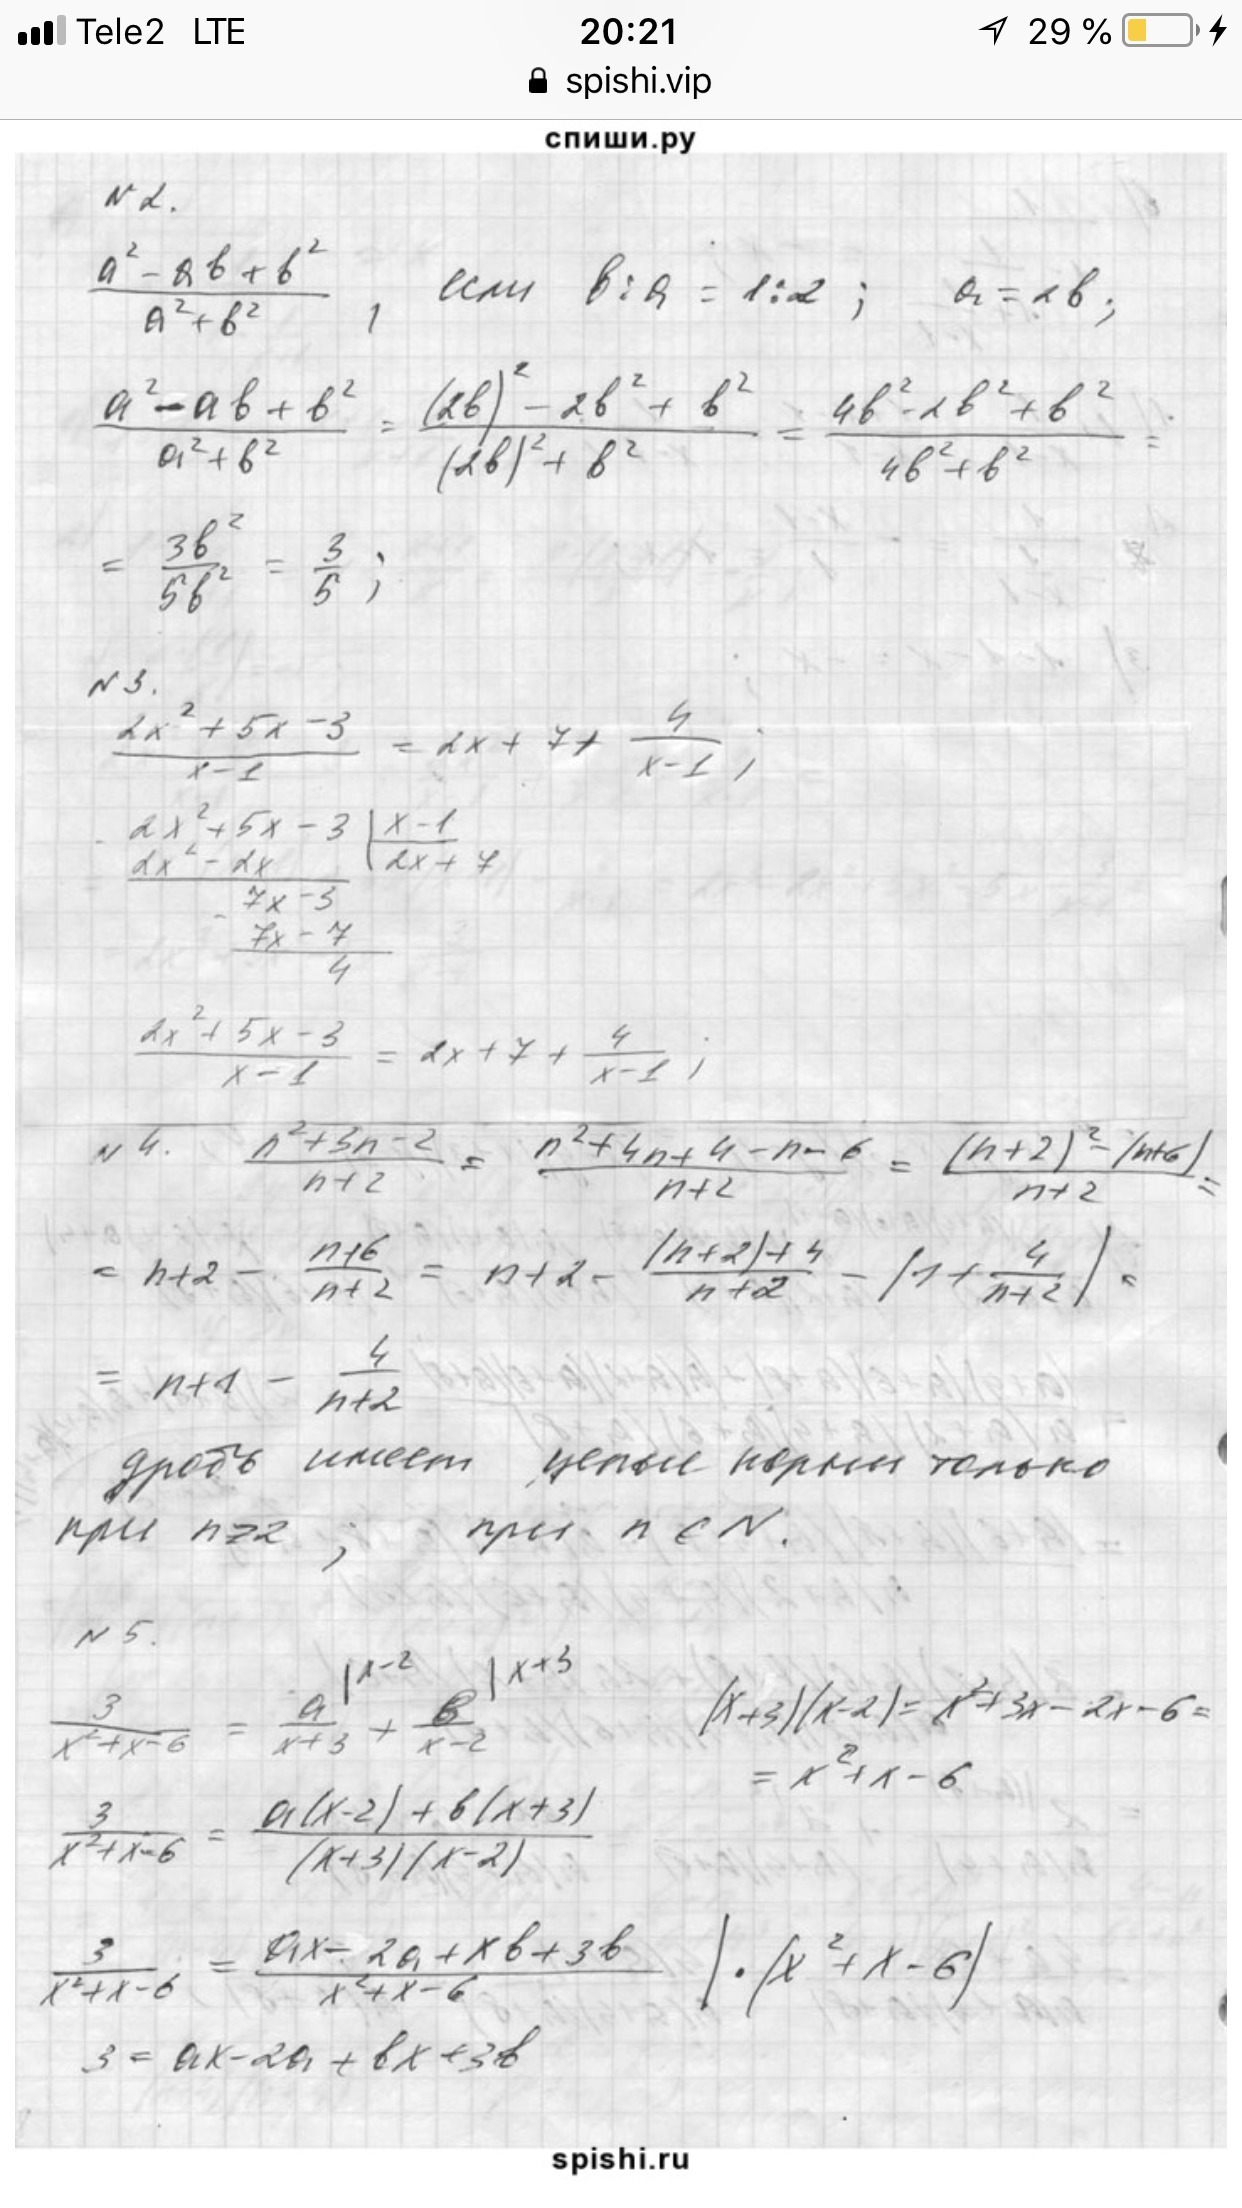 Tele2 LTE 20:21 29 %
spishi.vip
спиши.ру
N 2.
(a² - ab + b²)/(a² + b²), если b:a = 1:2; a = 2b;
(a² - ab + b²)/(a² + b²) = ((2b)² - 2b² + b²)/((2b)² + b²) = (4b² - 2b² + b²)/(4b² + b²) =
= 3b²/5b² = 3/5;
N 3.
(2x² + 5x - 3)/(x - 1) = 2x + 7 + 4/(x - 1);
2x² + 5x - 3 | x - 1
2x² - 2x | 2x + 7
7x - 3
7x - 7
4
(2x² + 5x - 3)/(x - 1) = 2x + 7 + 4/(x - 1);
N 4. (n² + 3n - 2)/(n + 2) = (n² + 4n + 4 - n - 6)/(n + 2) = ((n + 2)² - (n + 6))/(n + 2) =
= n + 2 - (n + 6)/(n + 2) = n + 2 - ((n + 2) + 4)/(n + 2) - (1 + 4/(n + 2)) =
= n + 1 - 4/(n + 2)
дробь имеет целые только
при n = 2; при n ∈ N.
N 5.
3/(x² + x - 6) = a/(x + 3) |x - 2 + b/(x - 2) |x + 3 (x + 3)(x - 2) = x² + 3x - 2x - 6 =
= x² + x - 6
3/(x² + x - 6) = (a(x - 2) + b(x + 3))/((x + 3)(x - 2))
3/(x² + x - 6) = (ax - 2a + xb + 3b)/(x² + x - 6) | · (x² + x - 6)
3 = ax - 2a + bx + 3b
spishi.ru